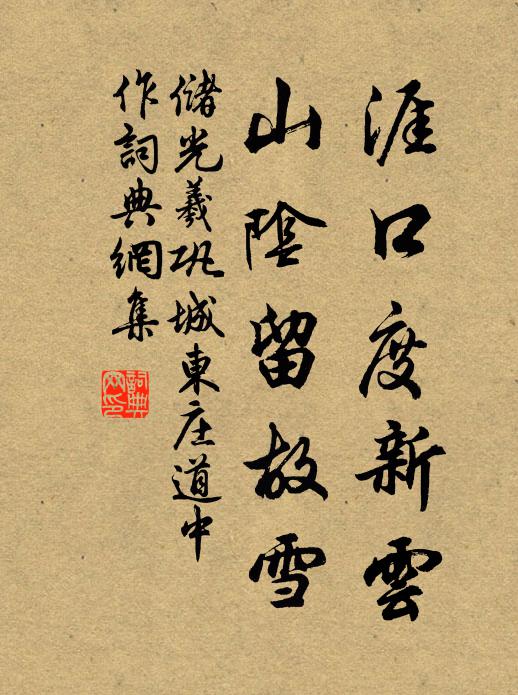 涯口度新雲
山陰留故雪
儲光羲巩城東庄道中
作詞典網集
詞典网印